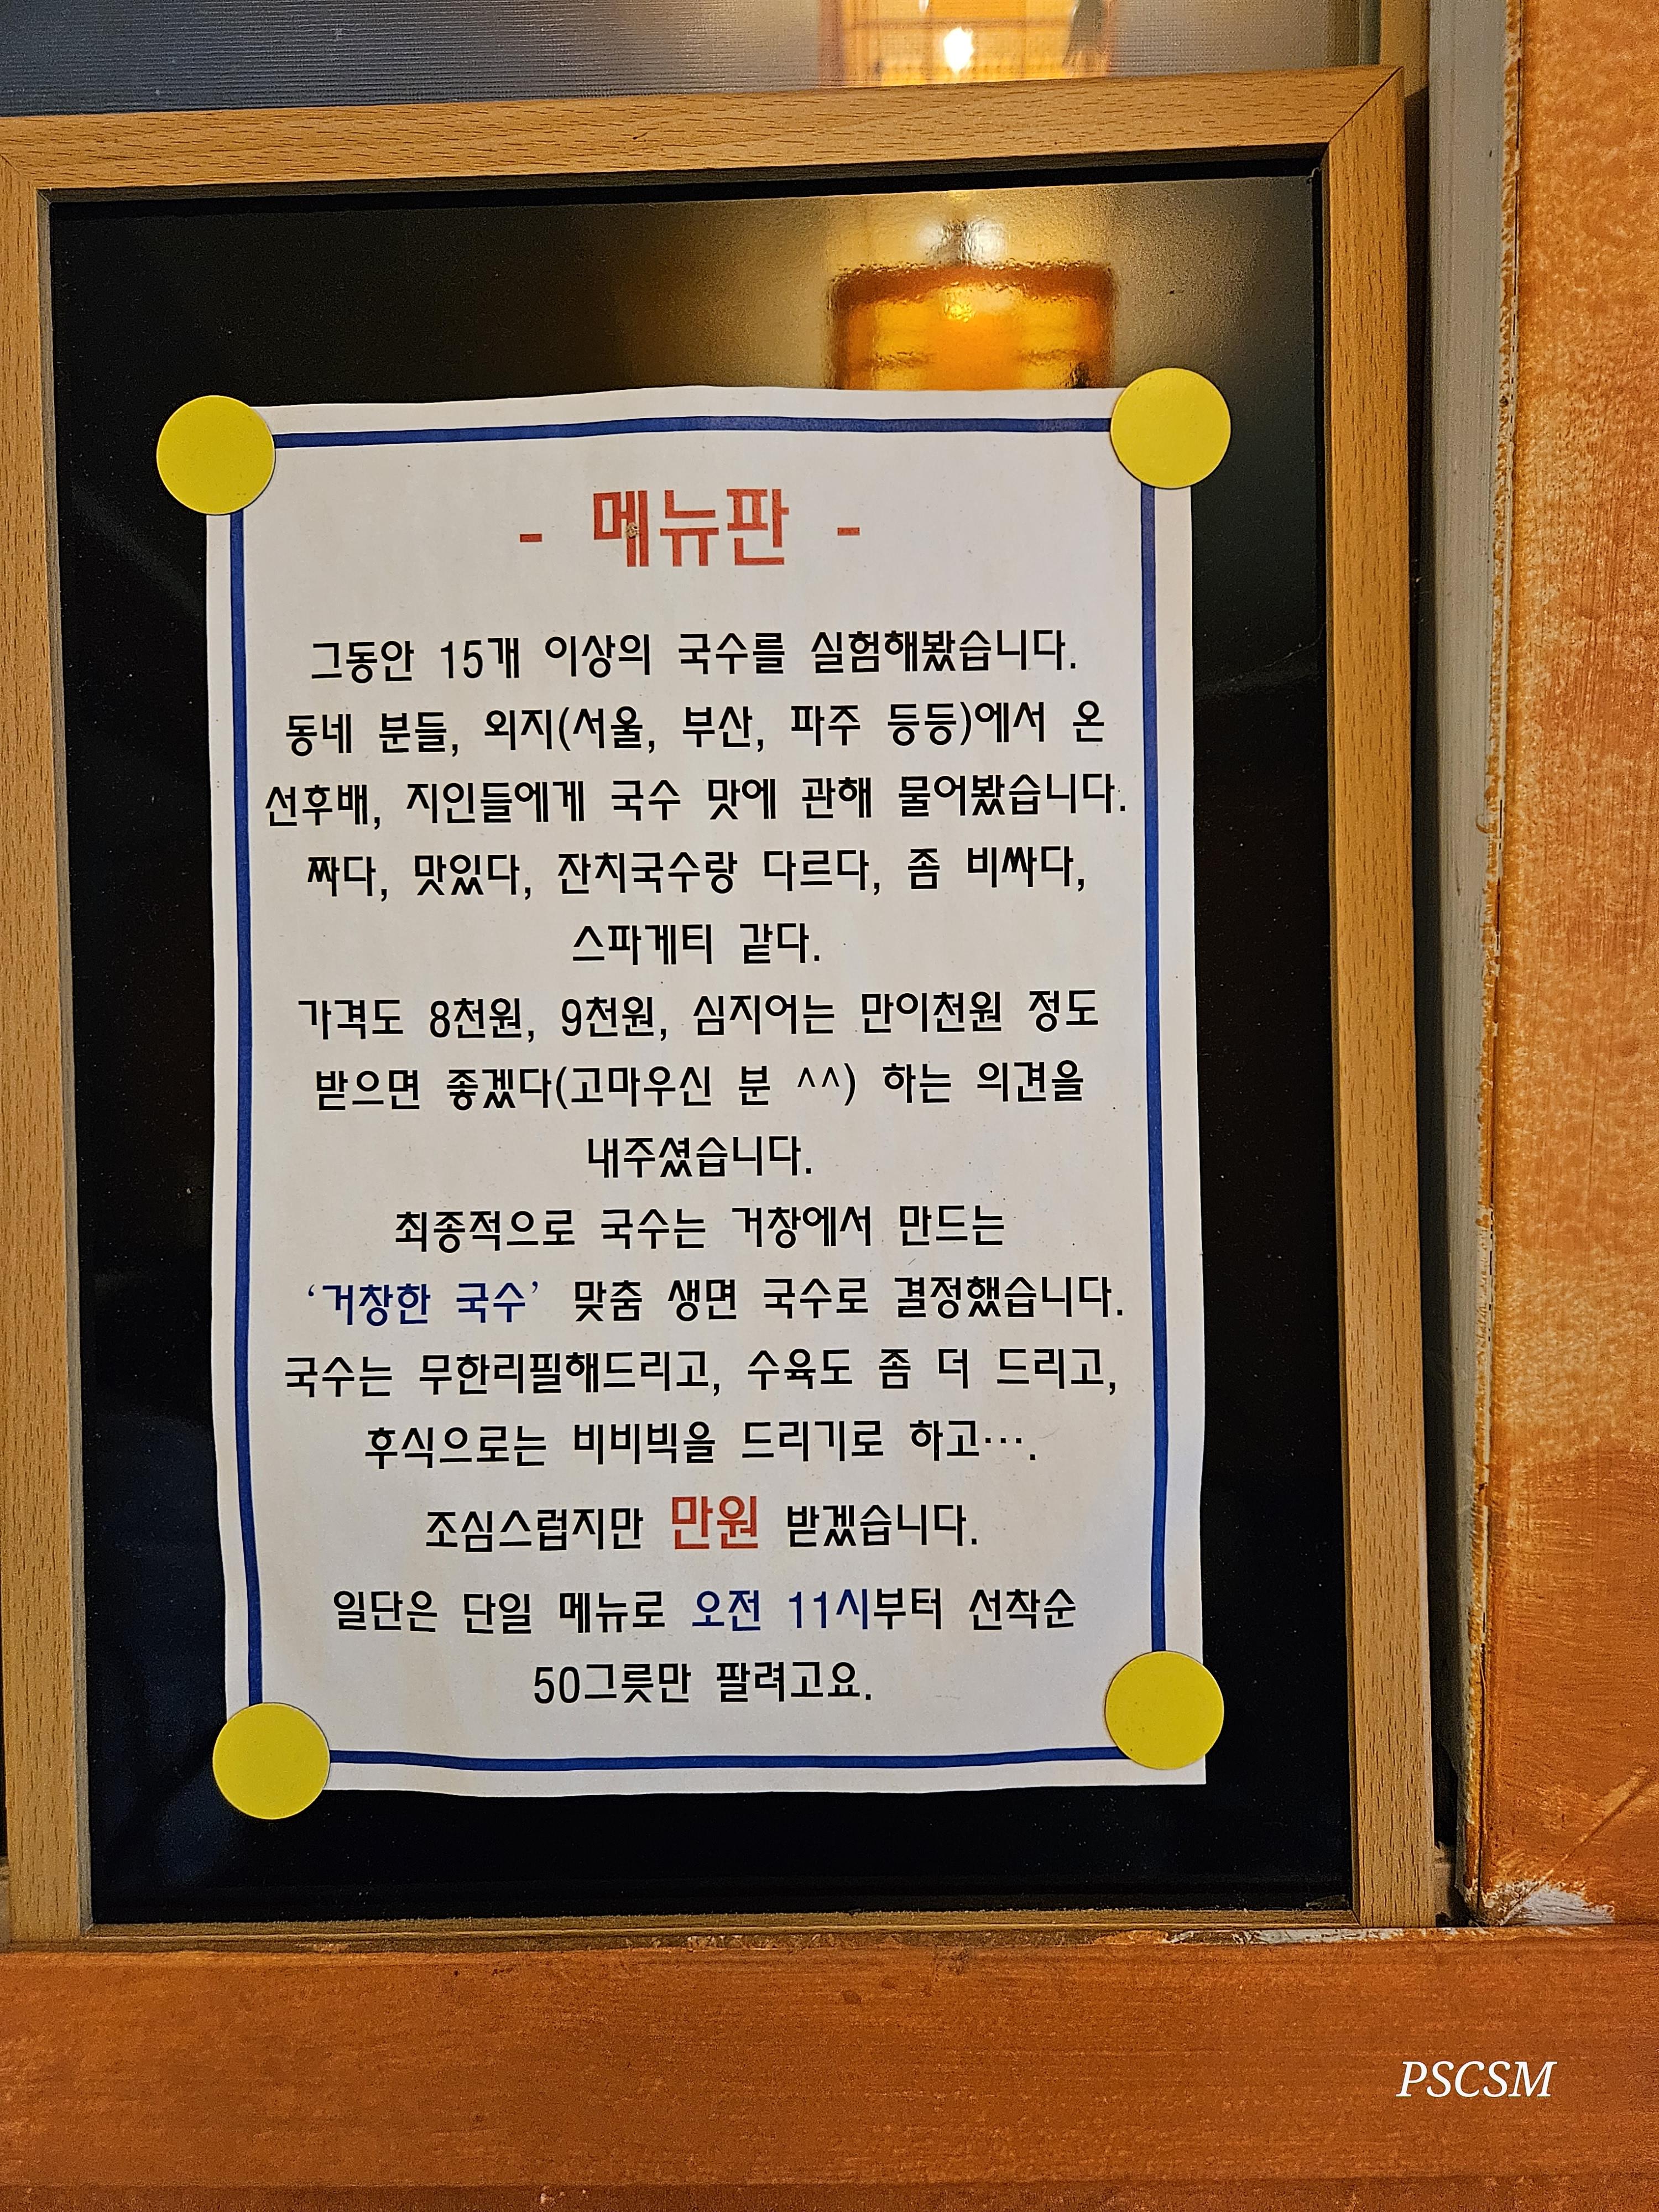 - 메뉴판 -
그동안 15개 이상의 국수를 실험해봤습니다.
동네 분들, 외지(서울, 부산, 파주 등등)에서 온
선후배, 지인들에게 국수 맛에 관해 물어봤습니다.
짜다, 맛있다, 잔치국수랑 다르다, 좀 비싸다,
스파게티 같다.
가격도 8천원, 9천원, 심지어는 만이천원 정도
받으면 좋겠다(고마우신 분 ^^) 하는 의견을
내주셨습니다.
최종적으로 국수는 거창에서 만드는
‘거창한 국수’ 맞춤 생면 국수로 결정했습니다.
국수는 무한리필해드리고, 수육도 좀 더 드리고,
후식으로는 비비빅을 드리기로 하고….
조심스럽지만 만원 받겠습니다.
일단은 단일 메뉴로 오전 11시부터 선착순
50그릇만 팔려고요.
PSCSM